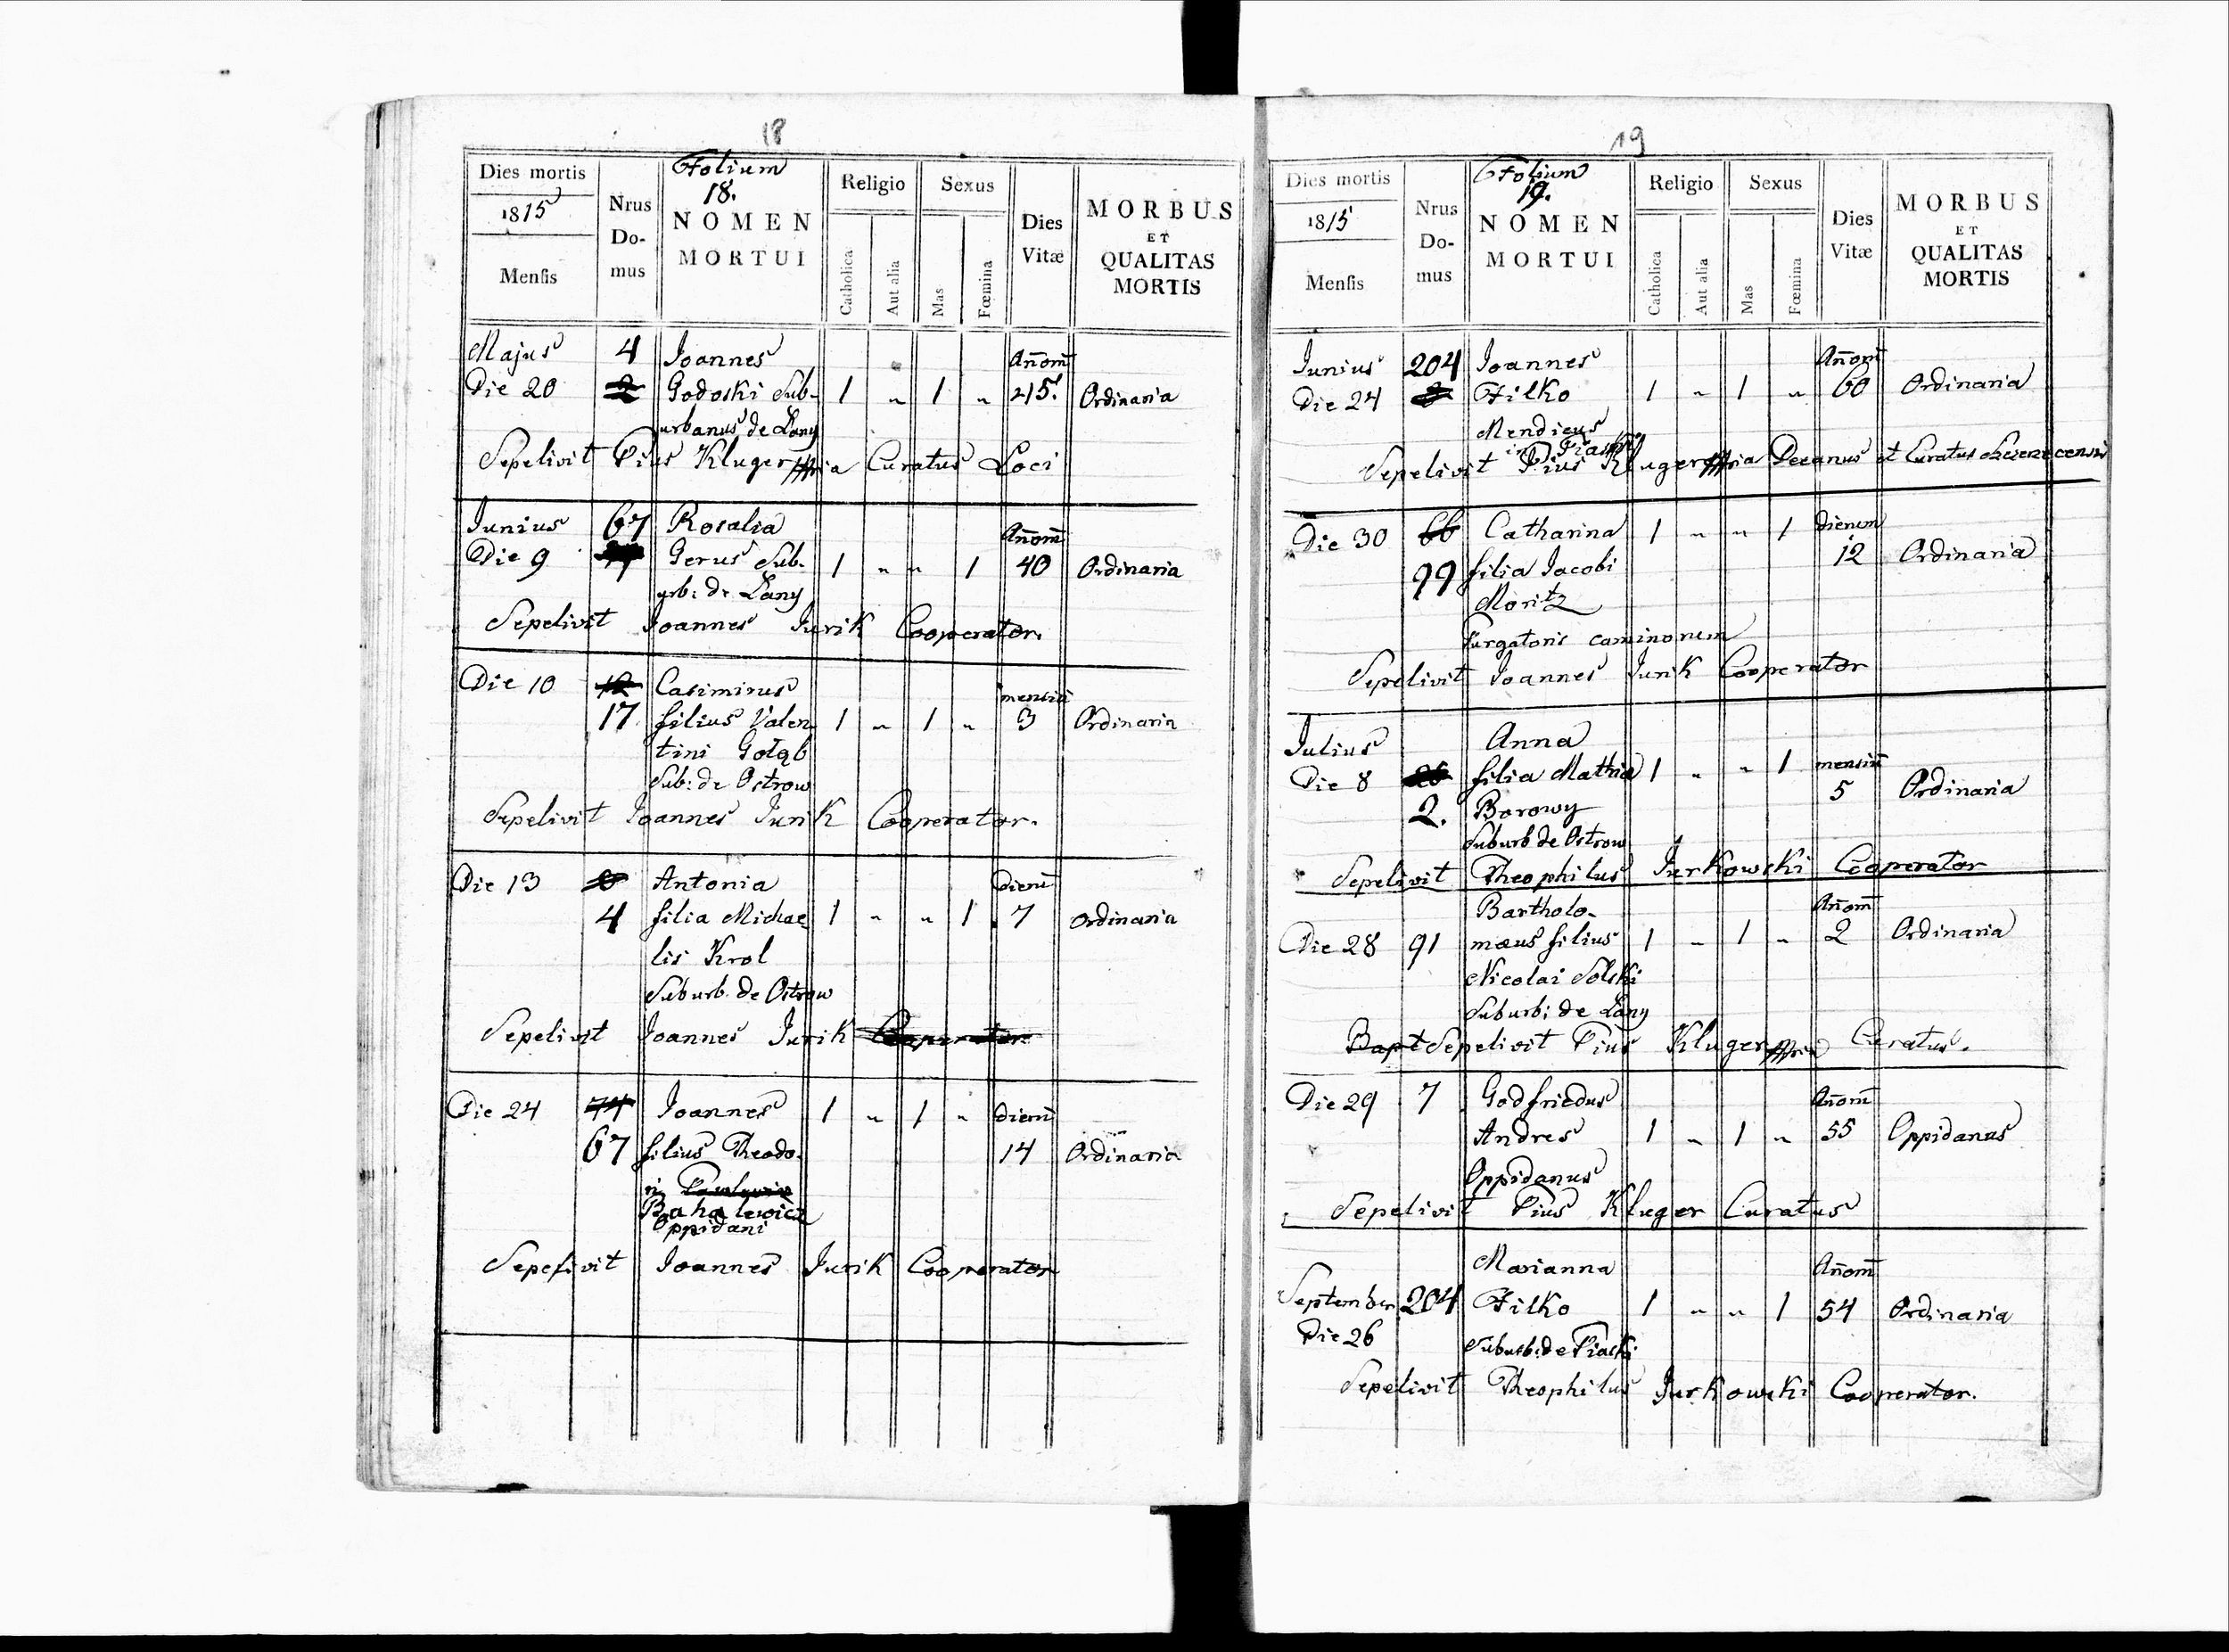 18
Folium
18.
Dies mortis
1815
Mensis
Nrus
Do-
mus
NOMEN
MORTUI
Religio
Catholica
Aut alia
Sexus
Mas
Fœmina
Dies
Vitæ
MORBUS
ET
QUALITAS
MORTIS
Majus 4 Joannes Añom
Die 20 2 Godoski Sub- 1 " 1 " 45. Ordinaria
urbanus de Lany
Sepelivit Pius Kluger mpria Curatus Loci
Junius 67 Rosalia Añom
Die 9 Gerus Sub- 1 " " 1 40 Ordinaria
urb: de Lany
Sepelivit Joannes Jurik Cooperator.
Die 10 12 Casimirus mensiū
17 filius Valen 1 " 1 " 3 Ordinaria
tini Gołąb
Sub: de Ostrow
Sepelivit Joannes Jurik Cooperator.
Die 13 Antonia Dierū
4 filia Michae 1 " " 1 7 Ordinaria
lis Krol
Suburb. de Ostrow
Sepelivit Joannes Jurik Cooperator
Die 24 74 Joannes 1 " 1 " Dierū
67 filius Theodo- 14 Ordinaria
ri
Bahalewicz
Oppidani
Sepelivit Joannes Jurik Cooperator
19
Folium
19.
Dies mortis
1815
Mensis
Nrus
Do-
mus
NOMEN
MORTUI
Religio
Catholica
Aut alia
Sexus
Mas
Fœmina
Dies
Vitæ
MORBUS
ET
QUALITAS
MORTIS
Junius 204 Joannes Añom
Die 24 Filko 1 " 1 " 60 Ordinaria
Mendicus
in Piaski
Sepelivit Pius Kluger mpria Decanus et Curatus
Die 30 66 Catharina 1 " " 1 Dierum
99 filia Jacobi 12 Ordinaria
Moritz
Purgatoris caminorum
Sepelivit Joannes Jurik Cooperator
Julius Anna
Die 8 26 filia Mathiæ 1 " " 1 mensiū
2. Borowy 5 Ordinaria
Suburb de Ostrow
Sepelivit Theophilus Jurkowski Cooperator
Bartholo- Añom
Die 28 91 mæus filius 1 " 1 " 2 Ordinaria
Nicolai Solski
Suburb: de Lany
Bapt Sepelivit Pius Kluger mpria Curatus.
Die 29 7 Godfriedus Añom
Andres 1 " 1 " 55 Oppidanus
Oppidanus
Sepelivit Pius Kluger Curatus
Marianna Añom
September 204 Filko 1 " " 1 54 Ordinaria
Die 26 Suburb: de Piaski
Sepelivit Theophilus Jurkowski Cooperator.